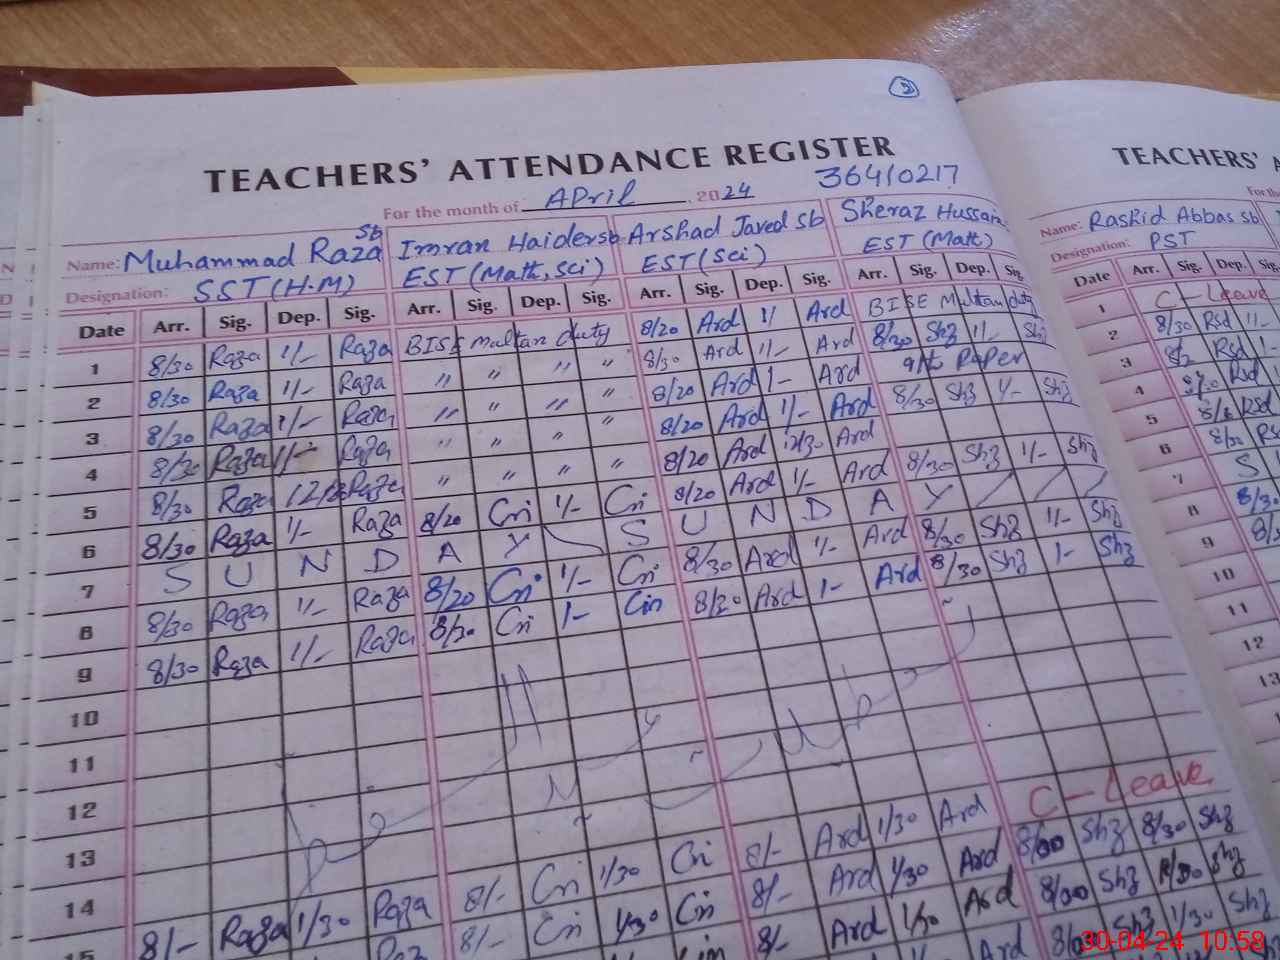 TEACHERS' ATTENDANCE REGISTER
For the month of April, 2024 36410217
Name: Muhammad Raza Sb Imran Haider sb Arshad Javed sb Sheraz Hussain
Designation: SST (H.M) EST (Math, Sci) EST (Sci) EST (Math)
Date Arr. Sig. Dep. Sig. Arr. Sig. Dep. Sig. Arr. Sig. Dep. Sig. Arr. Sig. Dep. Sig.
1 8/30 Raza 1/- Raza BISE multan duty 8/20 Ard 1/ Ard BISE Multan duty
2 8/30 Raza 1/- Raza " " " " 8/30 Ard 1/- Ard 8/30 Shz 1/- Shz
3 8/30 Raza 1/- Raza " " " " 8/20 Ard 1- Ard 9th Paper
4 8/30 Raza 1/- Raza " " " " 8/20 Ard 1/- Ard 8/30 Shz 1/- Shz
5 8/30 Raza Raza " " " " 8/20 Ard 12/30 Ard
6 8/30 Raza 1/- Raza 8/20 Cri 1/- Cri 8/20 Ard 1/- Ard 8/30 Shz 1/- Shz
7 S U N D A Y S U N D A Y
8 8/30 Raza 1/- Raza 8/20 Cri 1/- Cri 8/30 Ard 1/- Ard 8/30 Shz 1/- Shz
9 8/30 Raza 1/- Raza 8/30 Cri 1- Cri 8/30 Ard 1- Ard 8/30 Shz 1- Shz
10
11
12
13
C-Leave
14 8/- Cri 1/30 Cri 8/- Ard 1/30 Ard 8/00 Shz 8/30 Shz
15 8/- Raza 1/30 Raza 8/- Cri 1/30 Cri 8/- Ard 1/30 Ard 8/00 Shz Shz
8/- Ard 1/30 Ard Shz 1/30 Shz
TEACHERS'
Name: Rashid Abbas sb
Designation: PST
Date Arr. Sig. Dep. Sig.
1 C-Leave
2 8/30 Rsd 1/-
3 Rsd 1-
4 Rsd
5 Rsd
6 8/30
7 S
8 8/30
9
10
11
12
13
30-04-24 10:58